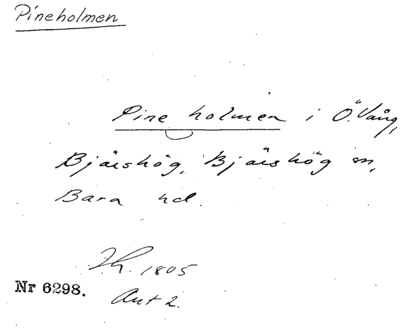 Pineholmen
Pine holmen i Ö. Vång,
Bjärshög, Bjärshög sn,
Bara hd.
1805
Nr 6298.
Akt 2.